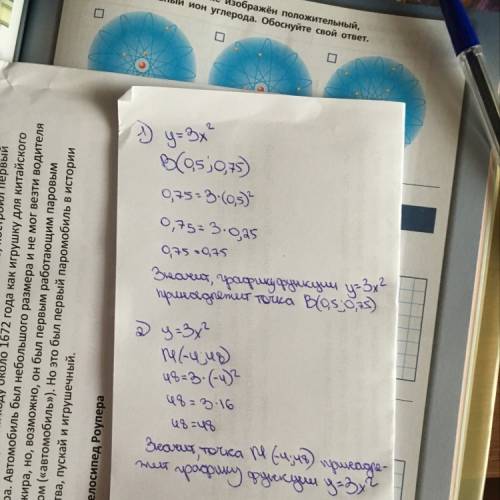 е изображён положительный,
ный ион углерода. Обоснуйте свой ответ.
1) y=3x²
B(0,5; 0,75)
0,75=3·(0,5)²
0,75=3·0,25
0,75=0,75
Значит, графику функции y=3x²
принадлежит точка B(0,5; 0,75)
2) y=3x²
M(-4; 48)
48=3·(-4)²
48=3·16
48=48
Значит, точка M(-4; 48) принадле-
жит графику функции y=3x²
построил первый
оду около 1672 года как игрушку для китайского
а. Автомобиль был небольшого размера и не мог везти водителя
жира, но, возможно, он был первым работающим паровым
ом («автомобиль»). Но это был первый паромобиль в истории
тва, пускай и игрушечный.
елосипед Роупера